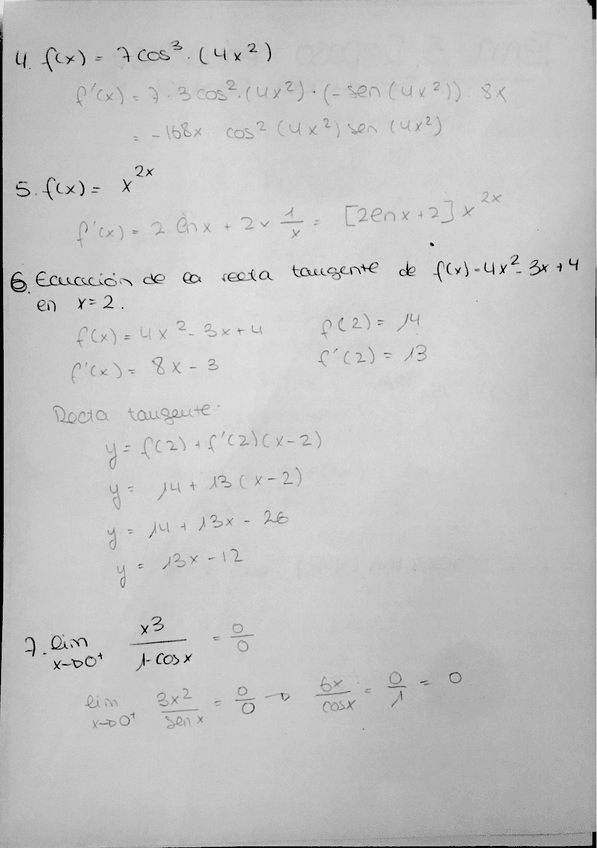 4. f(x) = 7cos³·(4x²)
f'(x) = 7·3cos²·(4x²)·(-sen(4x²))·8x
= -168x cos²(4x²)sen(4x²)
5. f(x) = x^{2x}
f'(x) = 2 lnx + 2x \frac{1}{x} = [2lnx+2]x^{2x}
6. Ecuación de la recta tangente de f(x)=4x²-3x+4
en x=2.
f(x) = 4x²-3x+4 f(2) = 14
f'(x) = 8x-3 f'(2) = 13
Recta tangente:
y = f(2)+f'(2)(x-2)
y = 14+13(x-2)
y = 14+13x-26
y = 13x-12
7. lim_{x→0⁺} \frac{x3}{1-cosx} = \frac{0}{0}
lim_{x→0⁺} \frac{3x2}{senx} = \frac{0}{0} → \frac{6x}{cosx} = \frac{0}{1} = 0